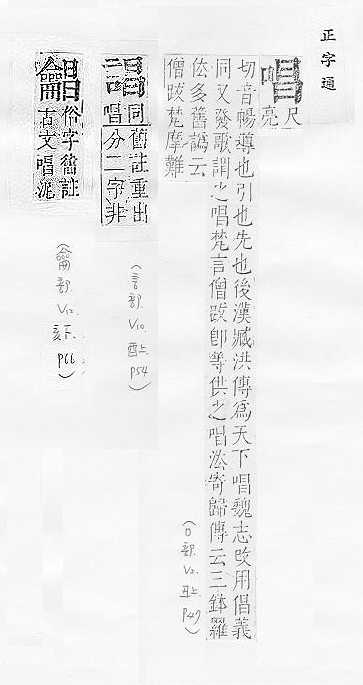 正字通
唱尺
亮
切音暢導也引也先也後漢臧洪傳為天下唱魏志改用倡義
同又發歌謂之唱梵言僧跋卽等供之唱法寄歸傳云三鉢羅
佉多舊譌云
僧跋梵摩難
(口部. V2. 丑上 P47)
誯同舊註重出
唱分二字非
(言部. V10. 酉上 P54)
俗字舊註
古文唱泥
(龠部. V12. 亥下. P66)